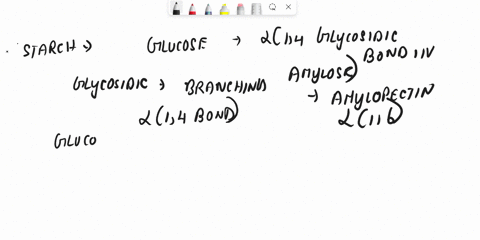 STARCH → GLUCOSE → α(1,4 GLYCOSIDIC
BOND IN
GLYCOSIDIC → BRANCHING AMYLOSE)
→ AMYLOPECTIN
α(1,4 BOND) α(1,6)
GLUCO